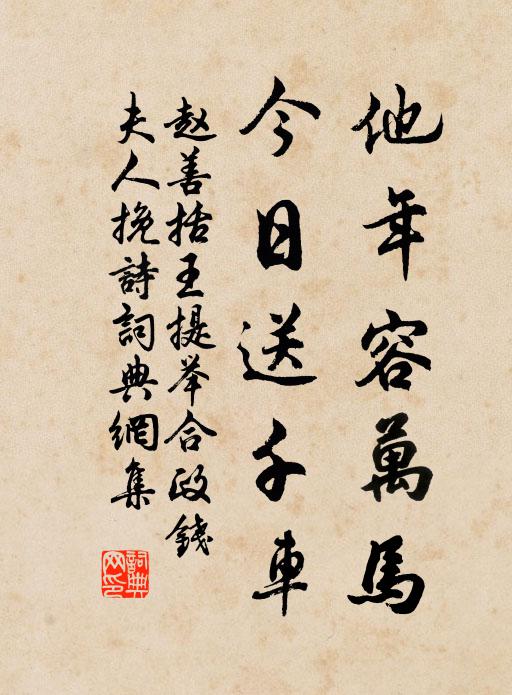 他年容萬馬
今日送千車
赵善括王提举合政錢
夫人挽詩詞典網集
詞典网印